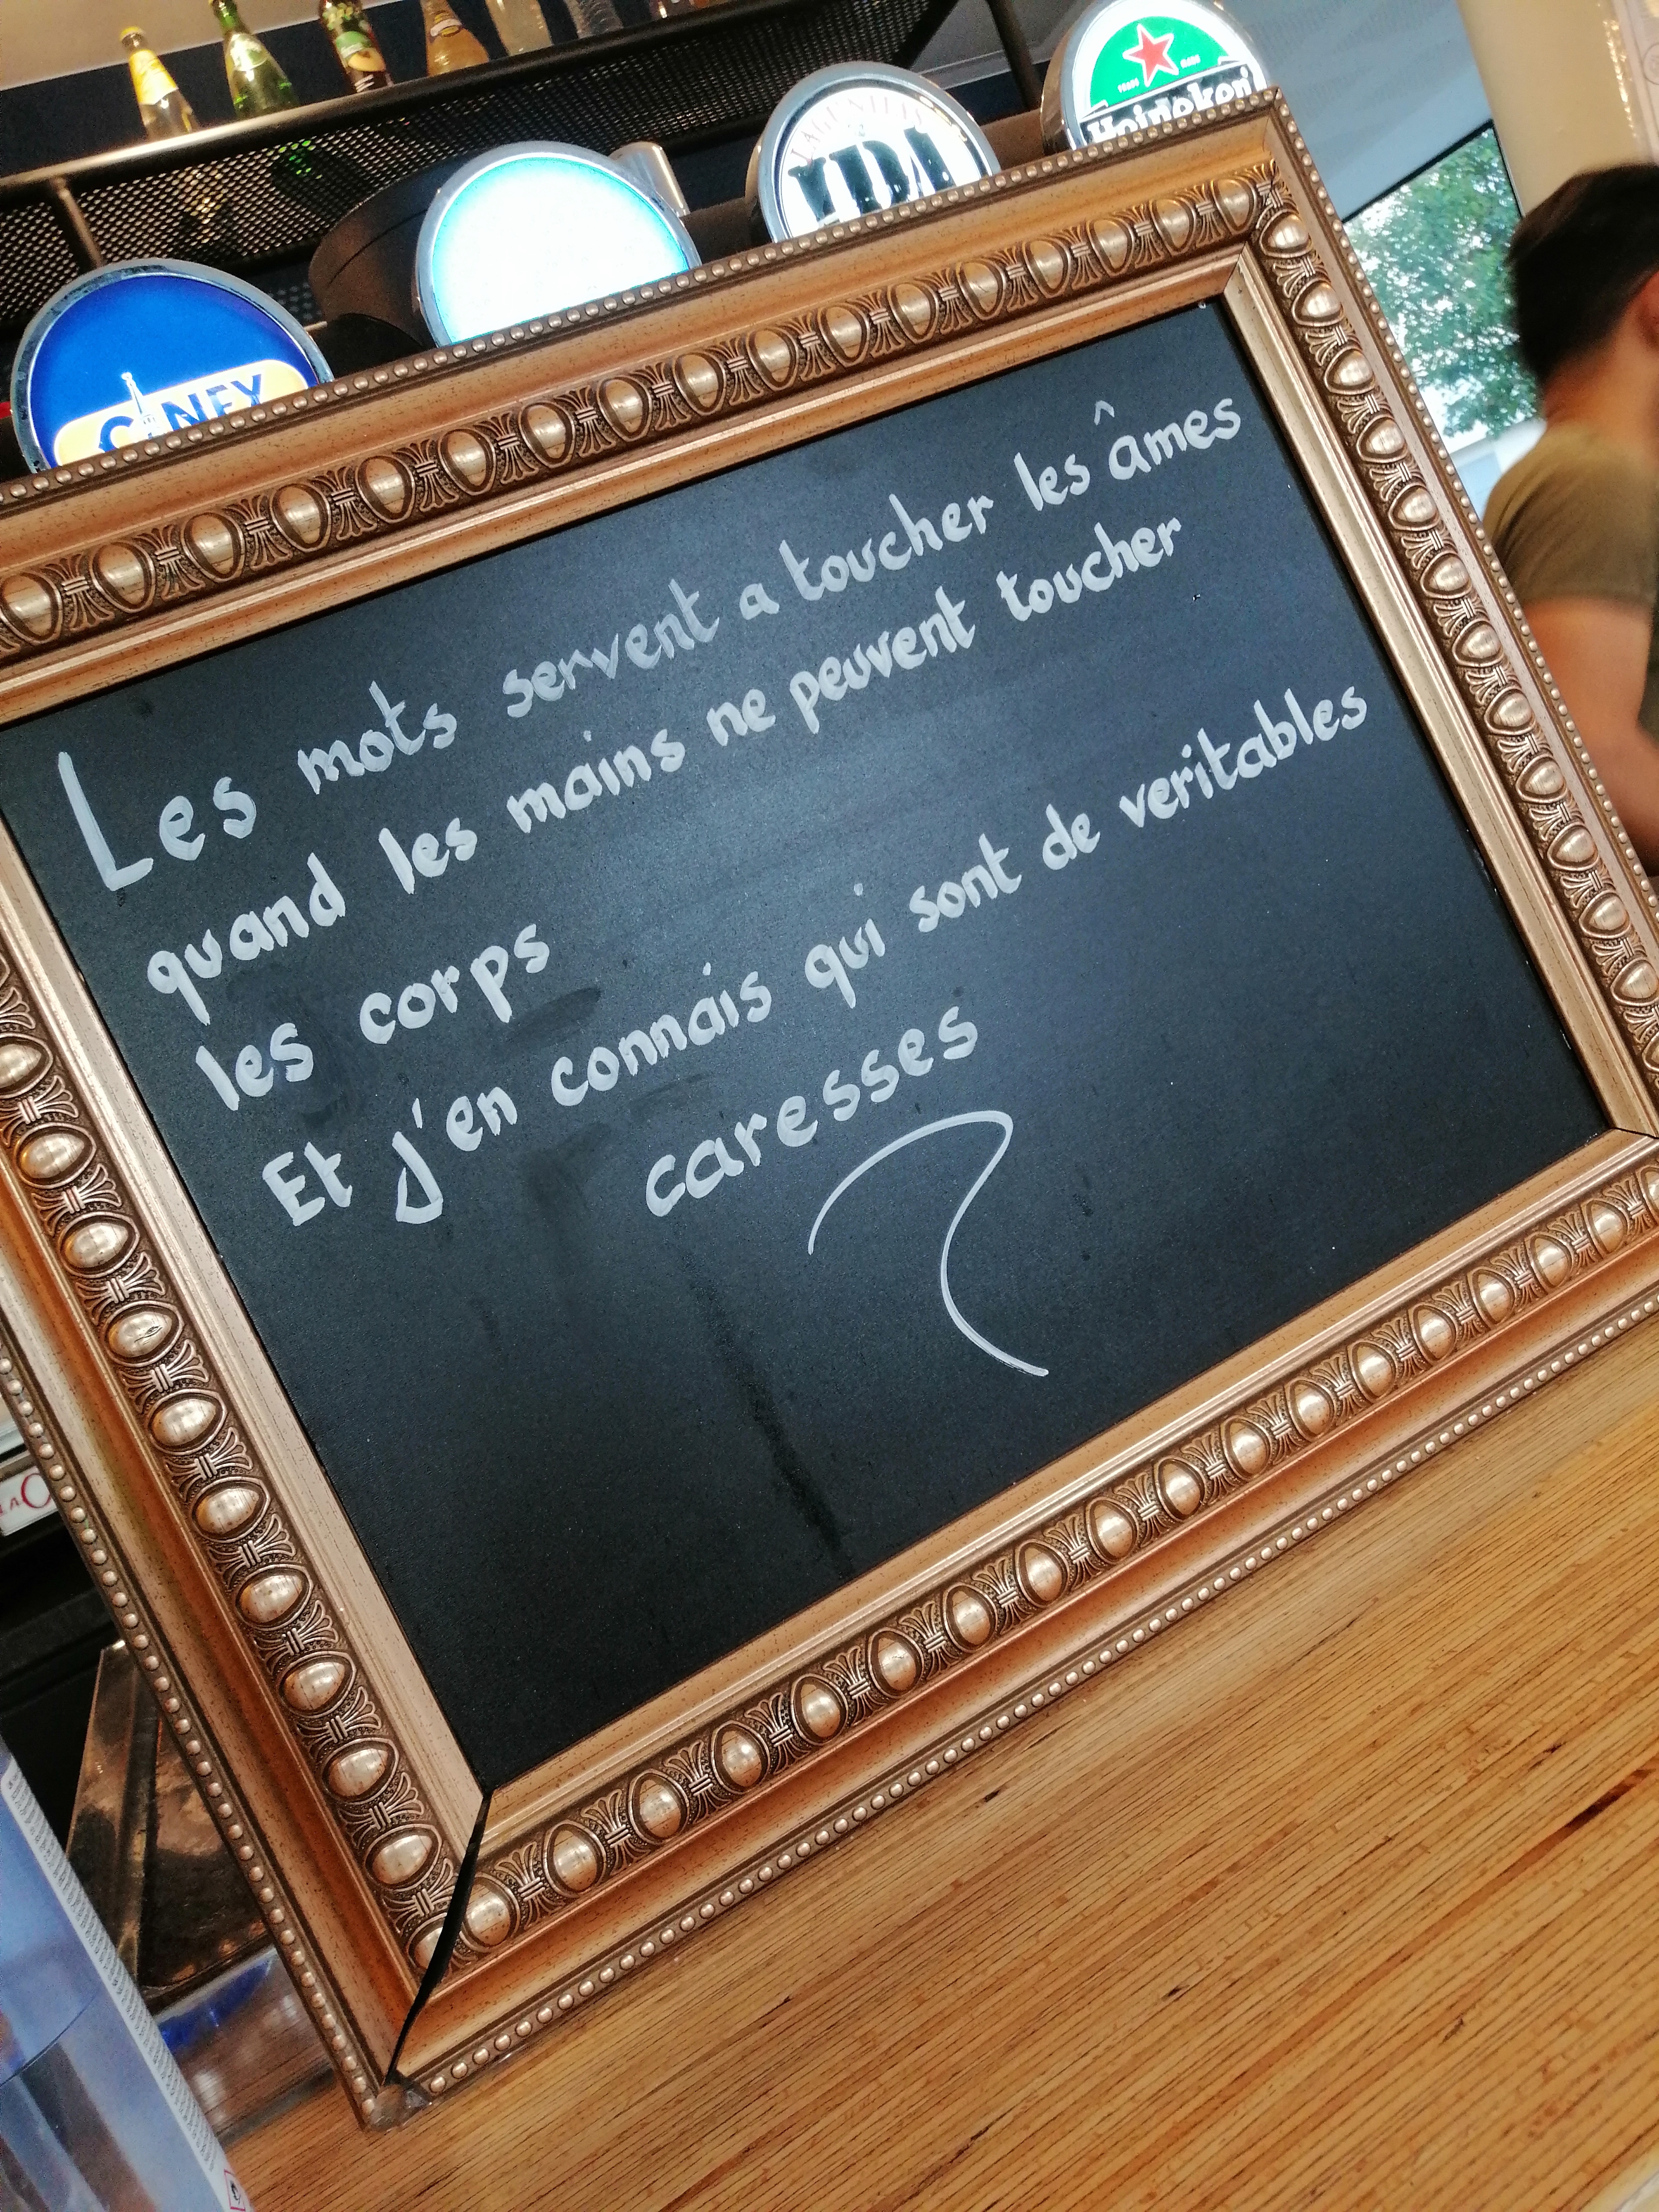 Heineken
LAGUNITAS
IPA
CINEY
Les mots servent a toucher les âmes
quand les mains ne peuvent toucher
les corps
Et j'en connais qui sont de veritables
caresses